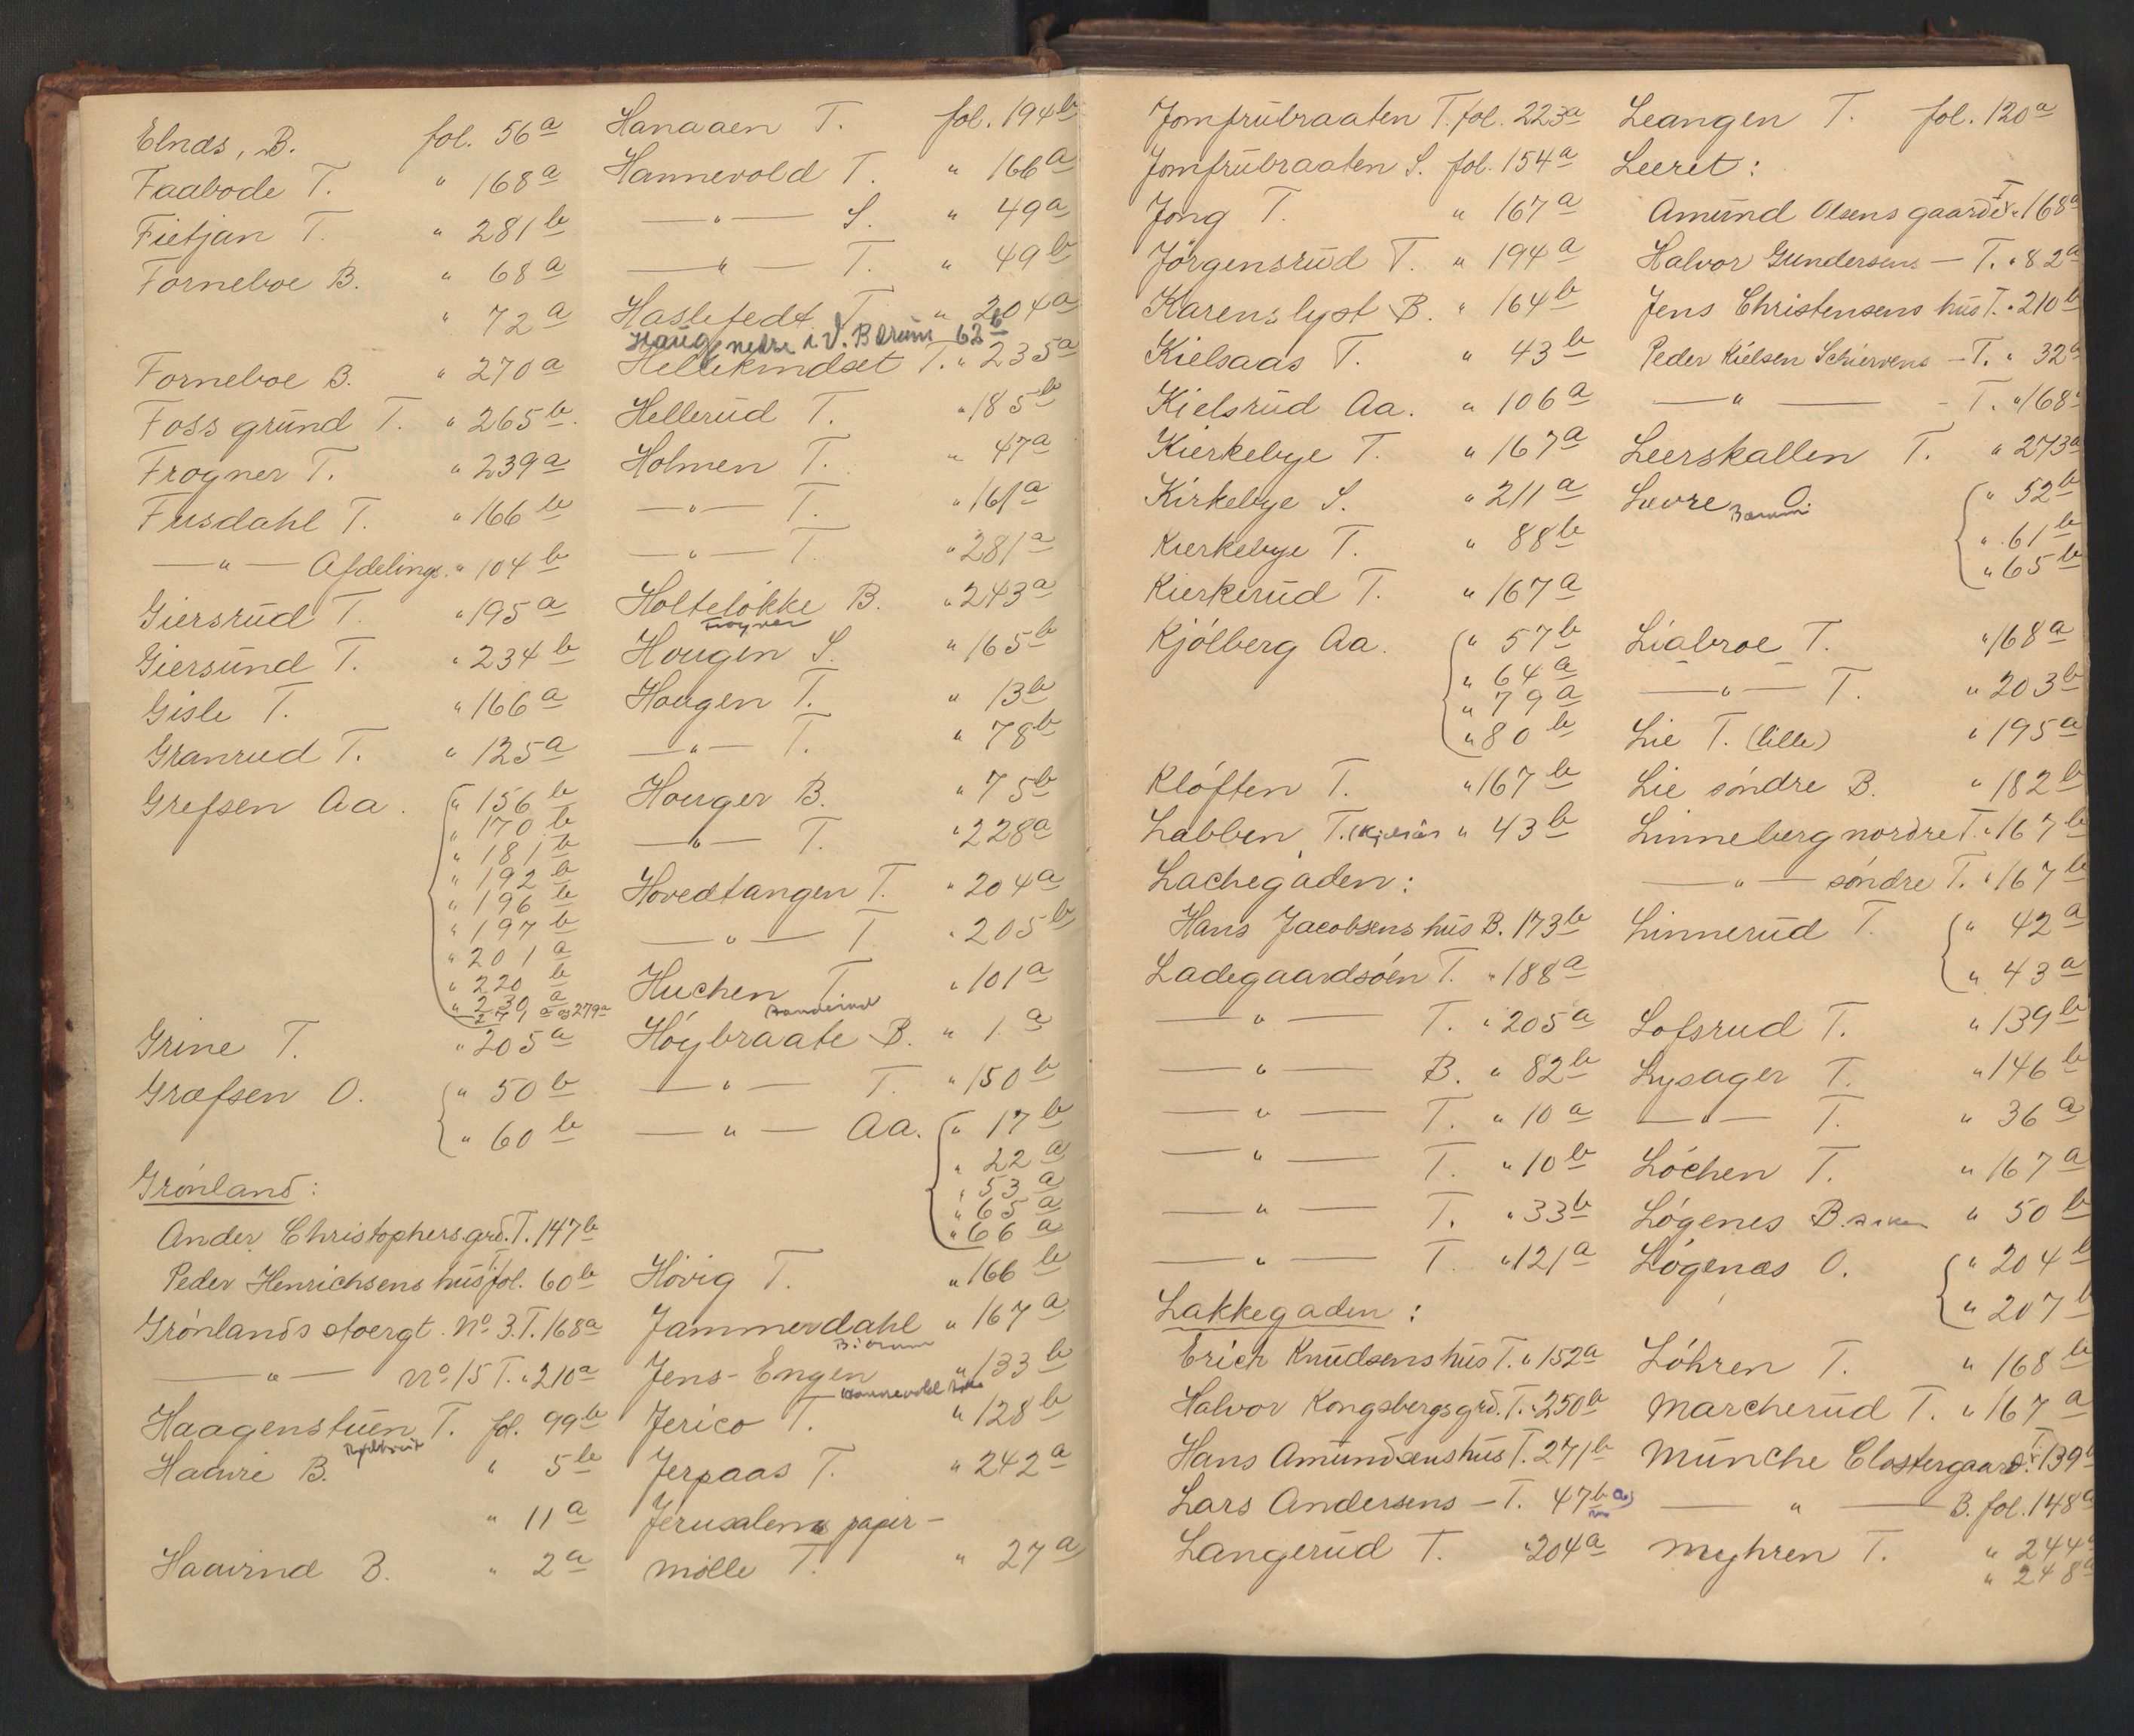 Elnæs, B. fol. 56a
Faabode T. " 168a
Fietjan T. " 281b
Forneboe B. " 68a
" 72a
Forneboe B. " 270a
Foss grund T. " 265b
Frogner T. " 239a
Fusdahl T. " 166b
— " — Afdelings. " 104b
Giersrud T. " 195a
Giersund T. " 234b
Gisle T. " 166a
Granrud T. " 125a
Grefsen Aa. " 156b
" 170b
" 181b
" 192b
" 196b
" 197b
" 201a
" 220b
" 230a
271a og 279a
Grine T. " 205a
Græfsen O. " 50b
" 60b
Grønland:
Ander Christophers.grd. T. 147b
Peder Henrichsens hus T. fol. 60b
Grønlands Torvgt. No. 3. T. 168a
— " — No. 15 T. " 210a
Haagenstuen T. fol. 99b
Haavre B. " 5b
" 11a
Haavind B. " 2a
Hanaaen T. fol. 194b
Hannevold T. " 166a
— " — S. " 49a
— " — T. " 49b
Haslefedt T. " 204a
Haug, nedre i V. Bærum 62b
Hellekindset T. " 235a
Hellerud T. " 185b
Holmen T. " 47a
— " — T. " 161a
— " — T. " 281a
Holteløkke B. " 243a
Frogner
Hougen S. " 165b
Hougen T. " 13b
— " — T. " 78b
Houger B. " 75b
— " — T. " 228a
Hovedtangen T. " 204a
— " — T " 205b
Huchen T. " 101a
Høybraate B. " 1a
— " — T. " 150b
— " — Aa. " 17b
" 22a
" 53a
" 65a
" 66a
Høvig T. " 166b
Jammerdahl " 167a
Bærum
Jens-Engen " 133b
Jerico T. " 128b
Jerpaas T. " 242a
Jerusalem papir-
mølle T. " 27a
Jomfrubraaten T. fol. 223a
Jomfrubraaten S. fol. 154a
Jong T. " 167a
Jörgensrud T. " 194a
Karenslyst B. " 164b
Kielsaas T. " 43b
Kielsrud Aa. " 106a
Kierkebye T. " 167a
Kirkebye S. " 211a
Kierkebye T. " 88b
Kierkerud T. " 167a
Kjølberg Aa. " 57b
" 64a
" 79a
" 80b
Kløften T. " 167b
Labben T. (Kjelsås " 43b
Lachegaden:
Hans Jacobsens hus B. 173b
Ladegaardsøen T. " 188a
— " — T. " 205a
— " — B. " 82b
— " — T. " 10a
— " — T. " 10b
— " — T. " 33b
— " — T. " 121a
Lakkegaden:
Erich Knudsens hus T. " 152a
Halvor Kongsbergs grd. T. " 250b
Hans Amundsens hus T. 271b
Lars Andersens — T. 47b a)
Langerud T. " 204a
Leangen T. fol. 120a
Leeret:
Amund Olsens gaard T. " 168a
Halvor Gundersens — T. " 82a
Jens Christensens hus T. " 210b
Peder Kielsen Schiervens — T. " 32a
— " — T. " 168
Leerskallen T. " 273a
Lævre O. " 52b
Bærum
" 61b
" 65b
Liabroe T. " 168a
— " — T. " 203b
Lie T. (lille) " 195a
Lie søndre B. " 182b
Linneberg nordre T. " 167b
— " — søndre T. " 167b
Linnerud T. " 42a
" 43a
Lofsrud T. " 139b
Lysager T. " 146b
— " — T. " 36a
Løchen T. " 167a
Løgenes B. Asker " 50b
Løgenæs O. " 204b
" 207b
Løhren T. " 168b
Marcherud T. " 167a
Münche Clostergaard T. " 139
— " — B. fol. 148a
Myhren T. " 244a
" 248a